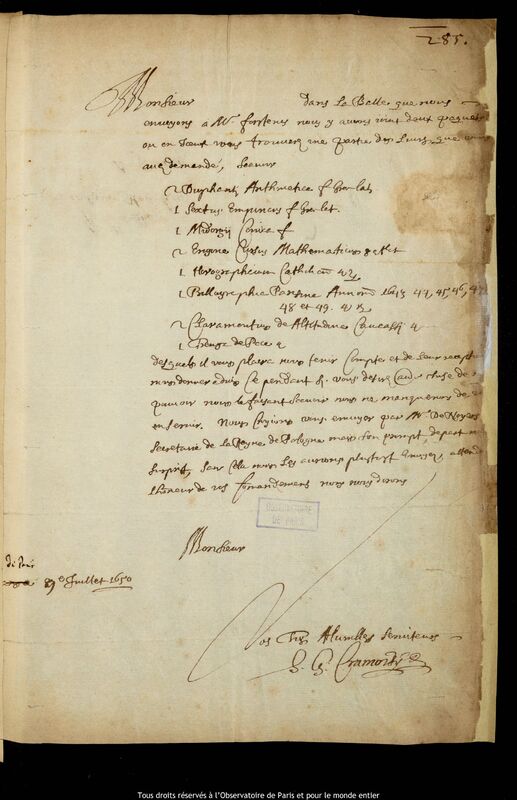 285.
Monsieur dans la Balle que nous
envoyons a Mr. fortenus nous y avons mint deux pacquets
ou en Iceux vous trouverez une partie des Livres que
avez demandé, Scavoir
2 Diophanti Arithmetica f Grec lat
1 Sextus Empiricus f Grec lat.
1 Midorgij Conica f
1 Cursus Mathematicus
1 Catholicum 4
1 Bibliographie Parisine Annor 1643 44, 45, 46, 47
48 et 49. 4
2 Claramontius de Altitudine Caucasi 4
1 4
desquels il vous plaira nous tenir Compte et de leur reception
nous donner advis Ce pendant Si vous desirez autre chose de
pouvoir nous le faisant Scavoir nous ne manquerons de
en servir. Nous Croyions vous envoyer par Mr. De Noyers
Secretaire de la Reyne de Pologne mais son prompt depart
surprit, sans Cela nous les aurions plustost Envoyez, attendant
l'honeur de vos Comandemens nous nous dirons
OBSERVATOIRE
DE PARIS
Monsieur
de Paris
9e Juillet 1650
Vos Tres Humbles Serviteurs
S. G. Cramoisy
Tous droits réservés à l'Observatoire de Paris et pour le monde entier